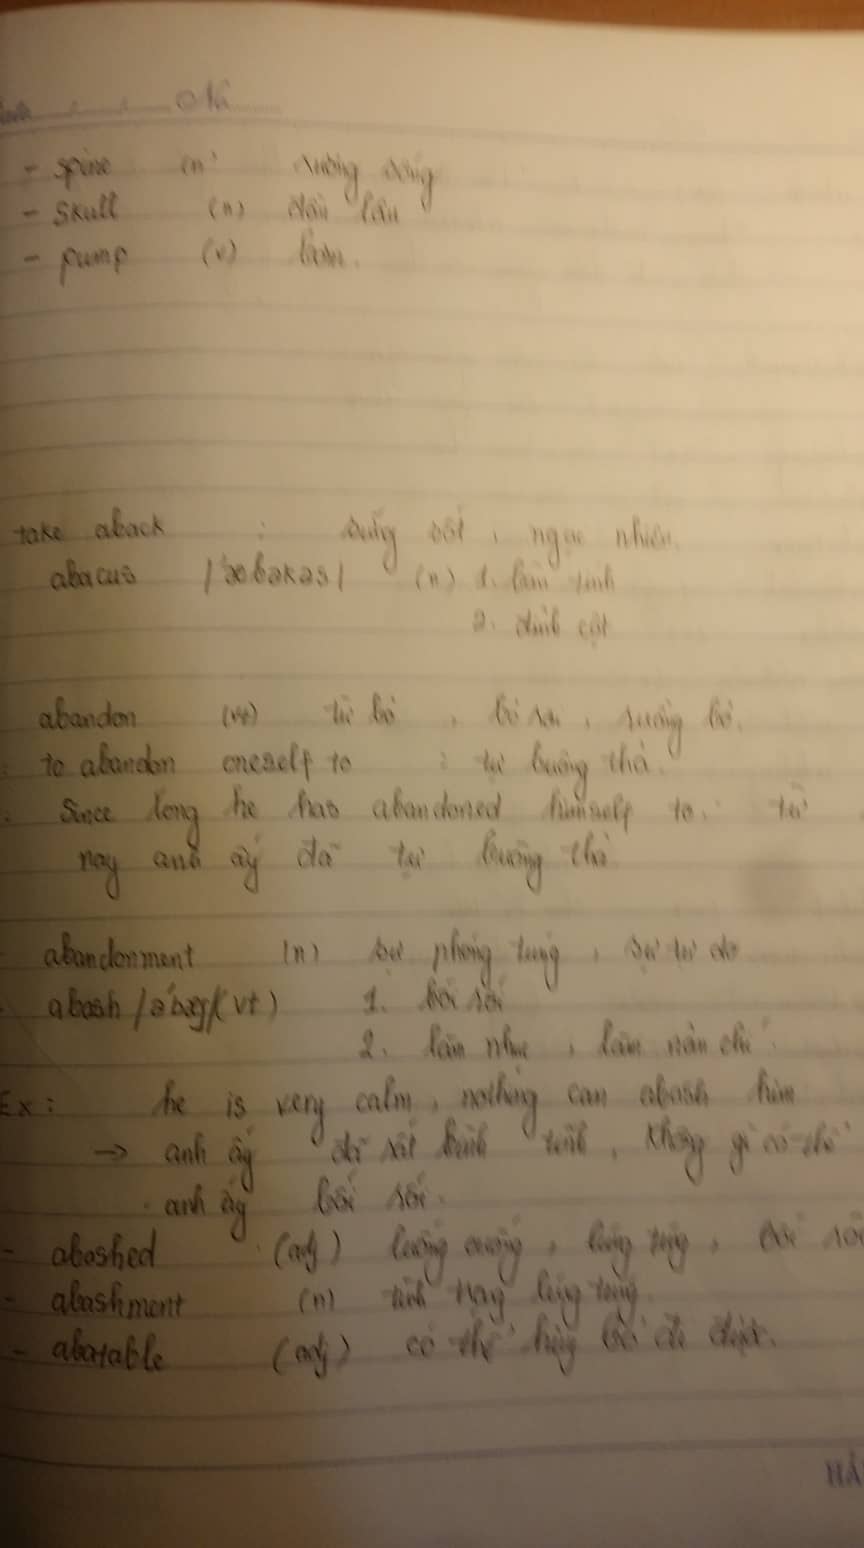 - spine (n) xương sống
- skull (n) đầu lâu
- pump (v) bơm.
take aback : sửng sốt, ngạc nhiên.
abacus /'æbəkəs/ (n) 1. bàn tính
2. đỉnh cột
abandon (vt) từ bỏ, bỏ rơi, ruồng bỏ.
: to abandon oneself to : tự buông thả.
: Since long he has abandoned himself to. từ
nay anh ấy đã tự buông thả
- abandonment (n) sự phóng túng, sự tự do
- abash /ə'bæʃ/ (vt) 1. bối rối
2. làm nhục, làm nản chí
Ex: he is very calm, nothing can abash him
→ anh ấy rất bình tĩnh, không gì có thể
anh ấy bối rối.
- abashed (adj) luống cuống, lúng túng, bối rối
- abashment (n) tình trạng lúng túng
- abatable (adj) có thể hủy bỏ đi được.
HẢ